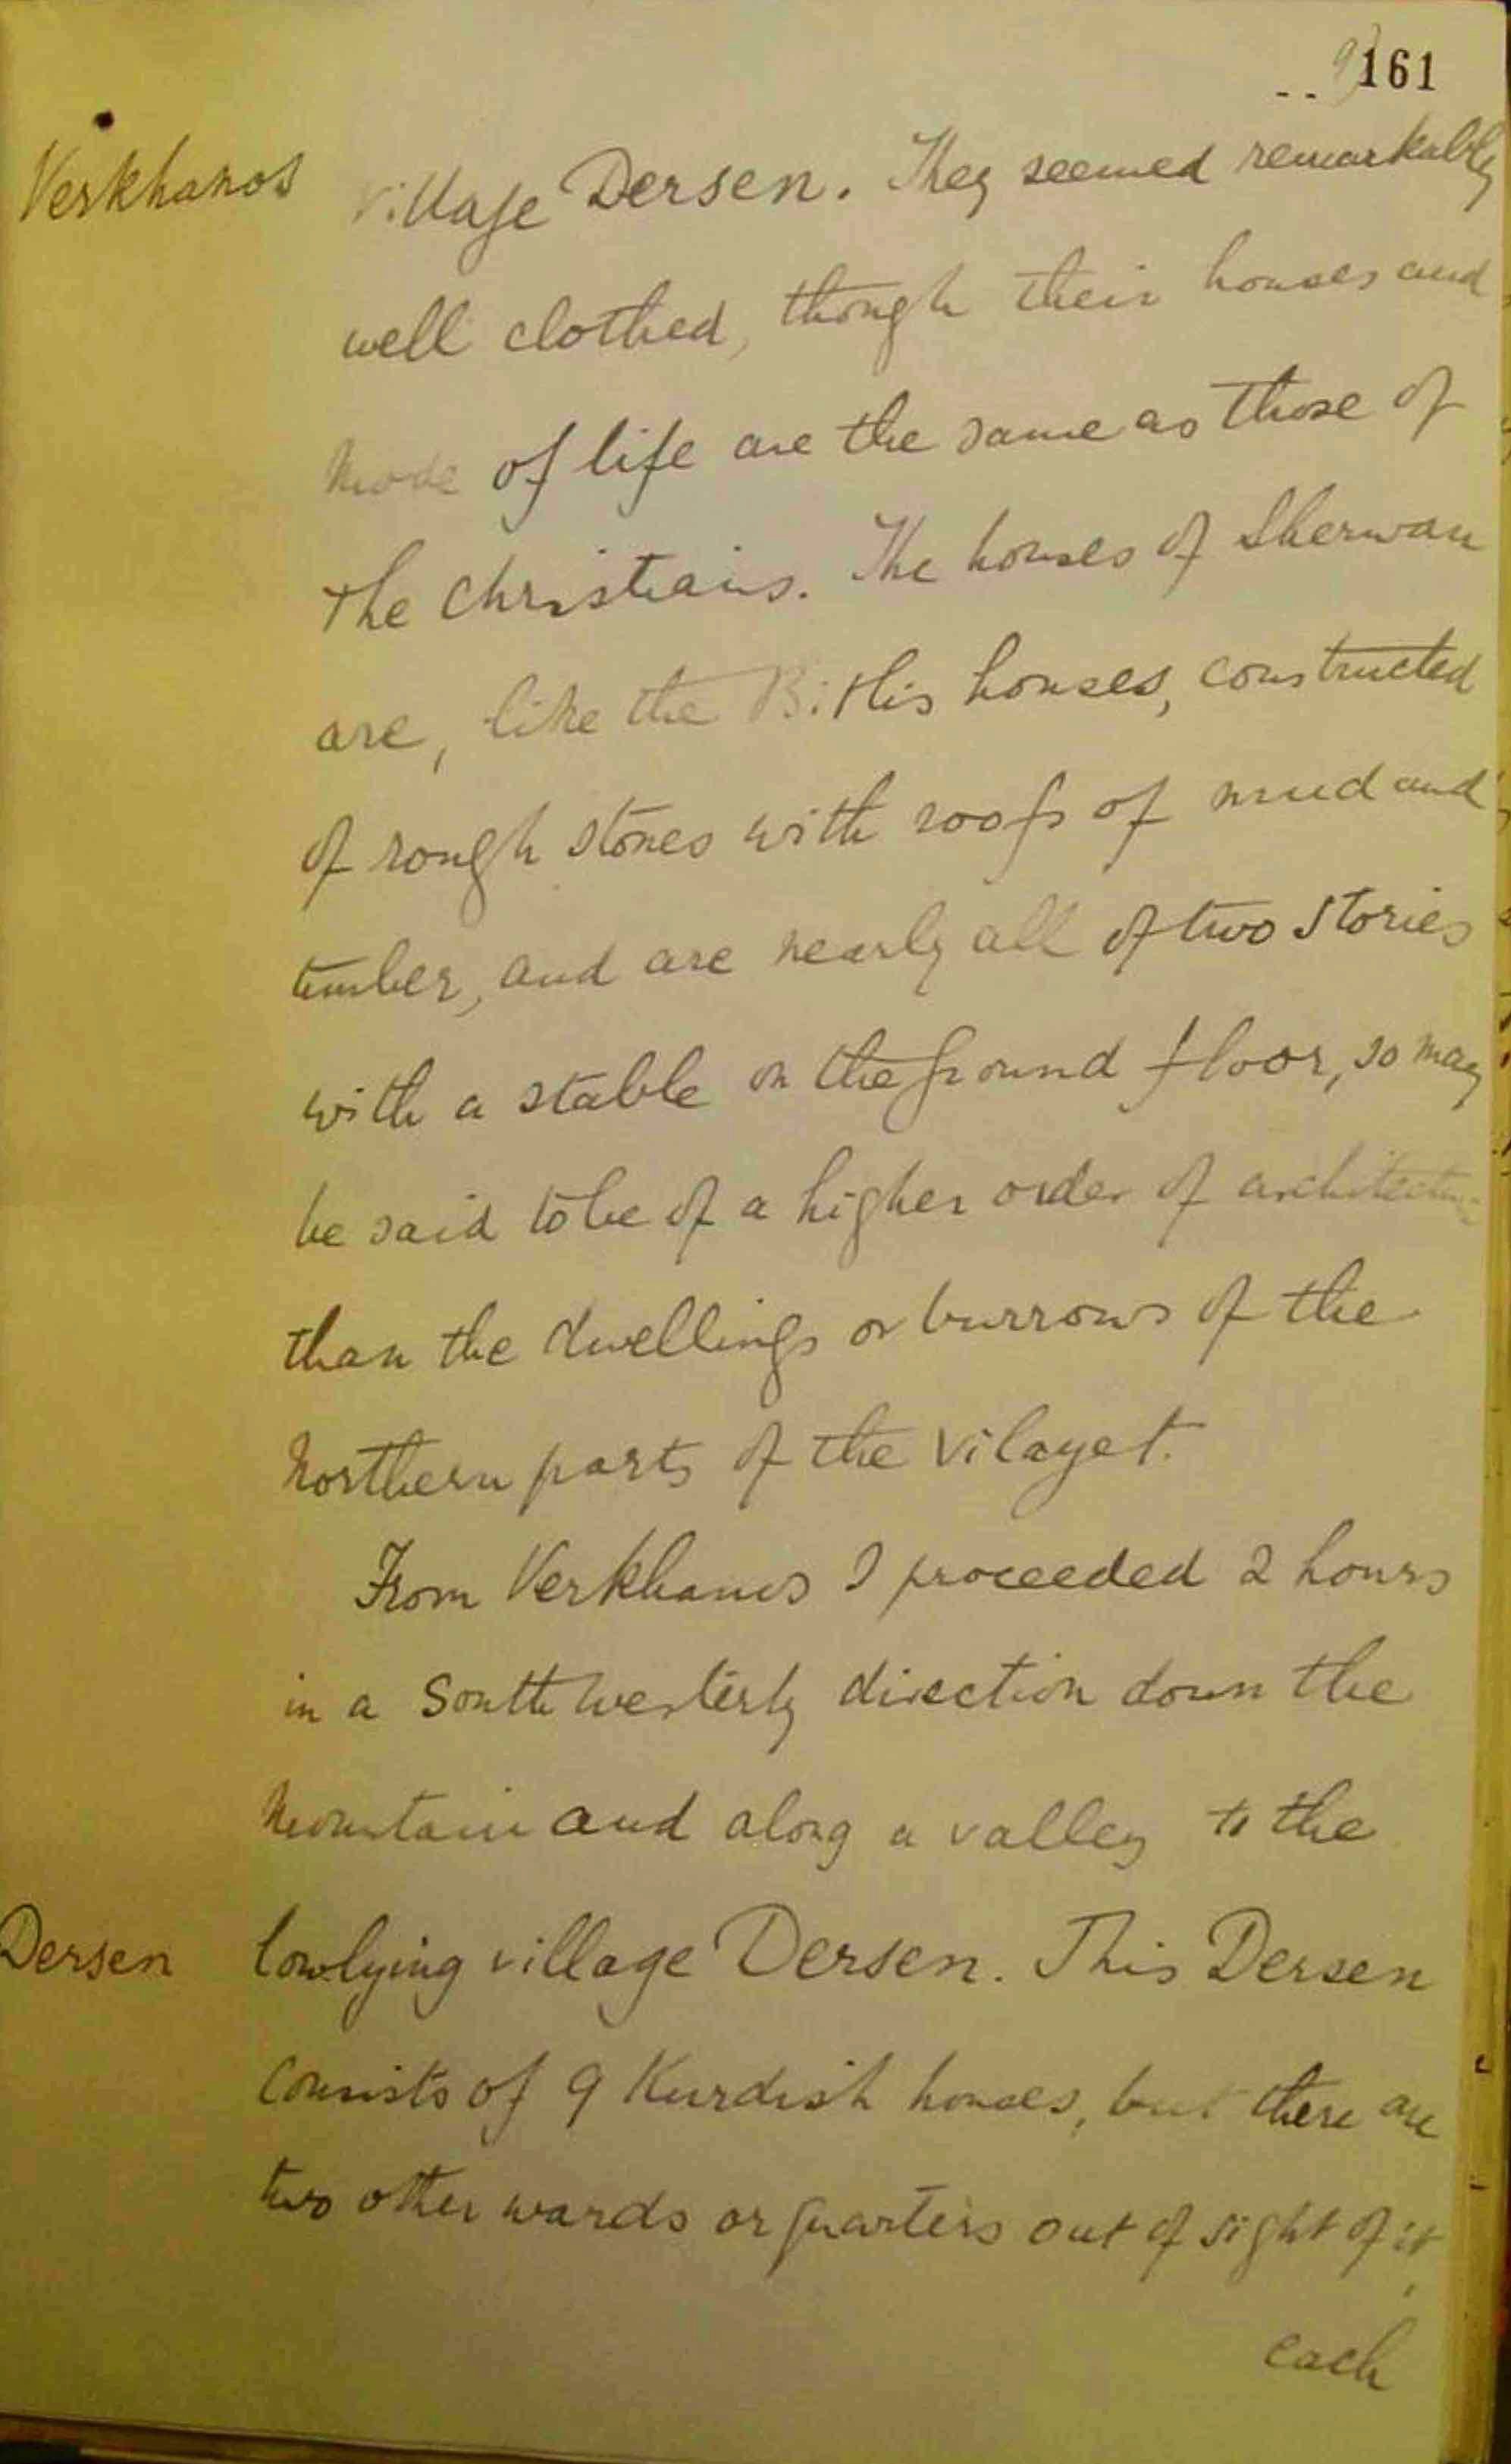 161
Verkhanos
village Dersen. They seemed remarkably
well clothed, though their houses and
mode of life are the same as those of
the Christians. The houses of Sherwan
are, like the Bitlis houses, constructed
of rough stones with roofs of mud and
timber, and are nearly all of two stories
with a stable on the ground floor, so may
be said to be of a higher order of architecture
than the dwellings or burrows of the
Northern parts of the Vilayet.
From Verkhanos I proceeded 2 hours
in a South Westerly direction down the
mountain and along a valley to the
Dersen
lowlying village Dersen. This Dersen
consists of 9 Kurdish houses, but there are
two other wards or quarters out of sight of it,
each